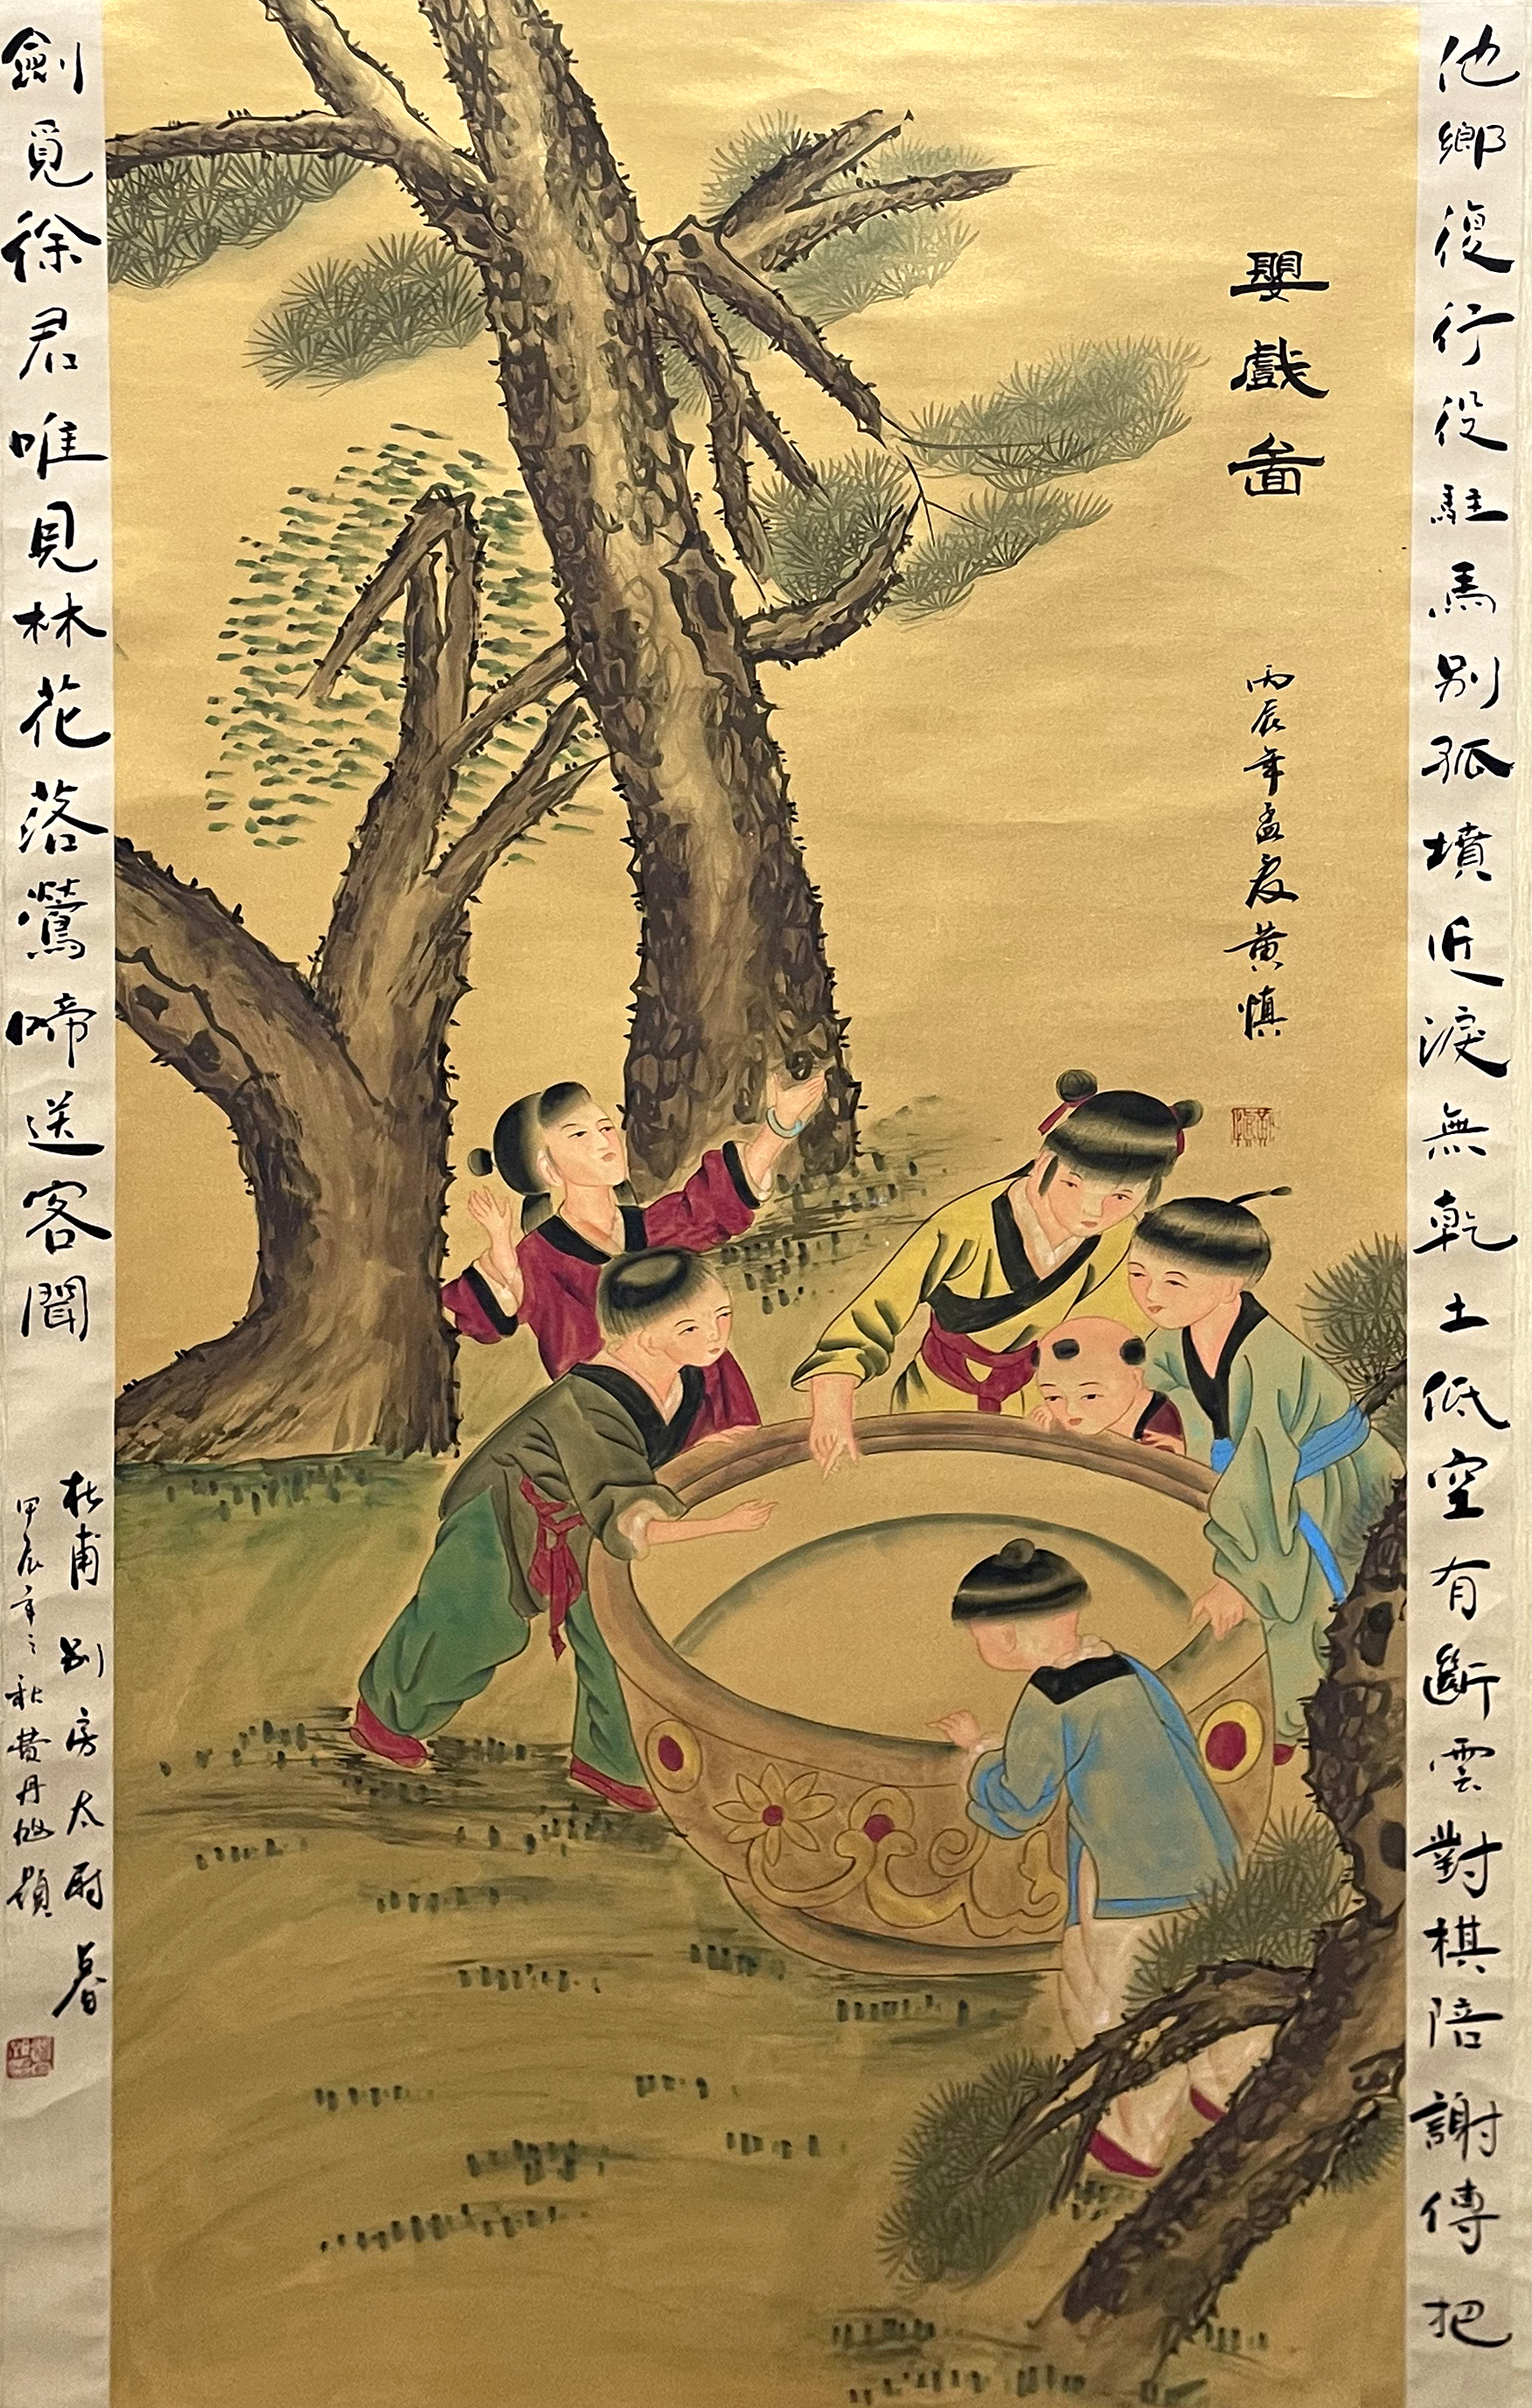 他鄉復行役駐馬別孤墳近淚無乾土低空有斷雲對棋陪謝傅把
嬰戲啚
丙辰年孟夏黃慎
黃慎
劍覓徐君唯見林花落鶯啼送客聞
杜甫別房太尉暮
甲辰年之秋費丹旭題